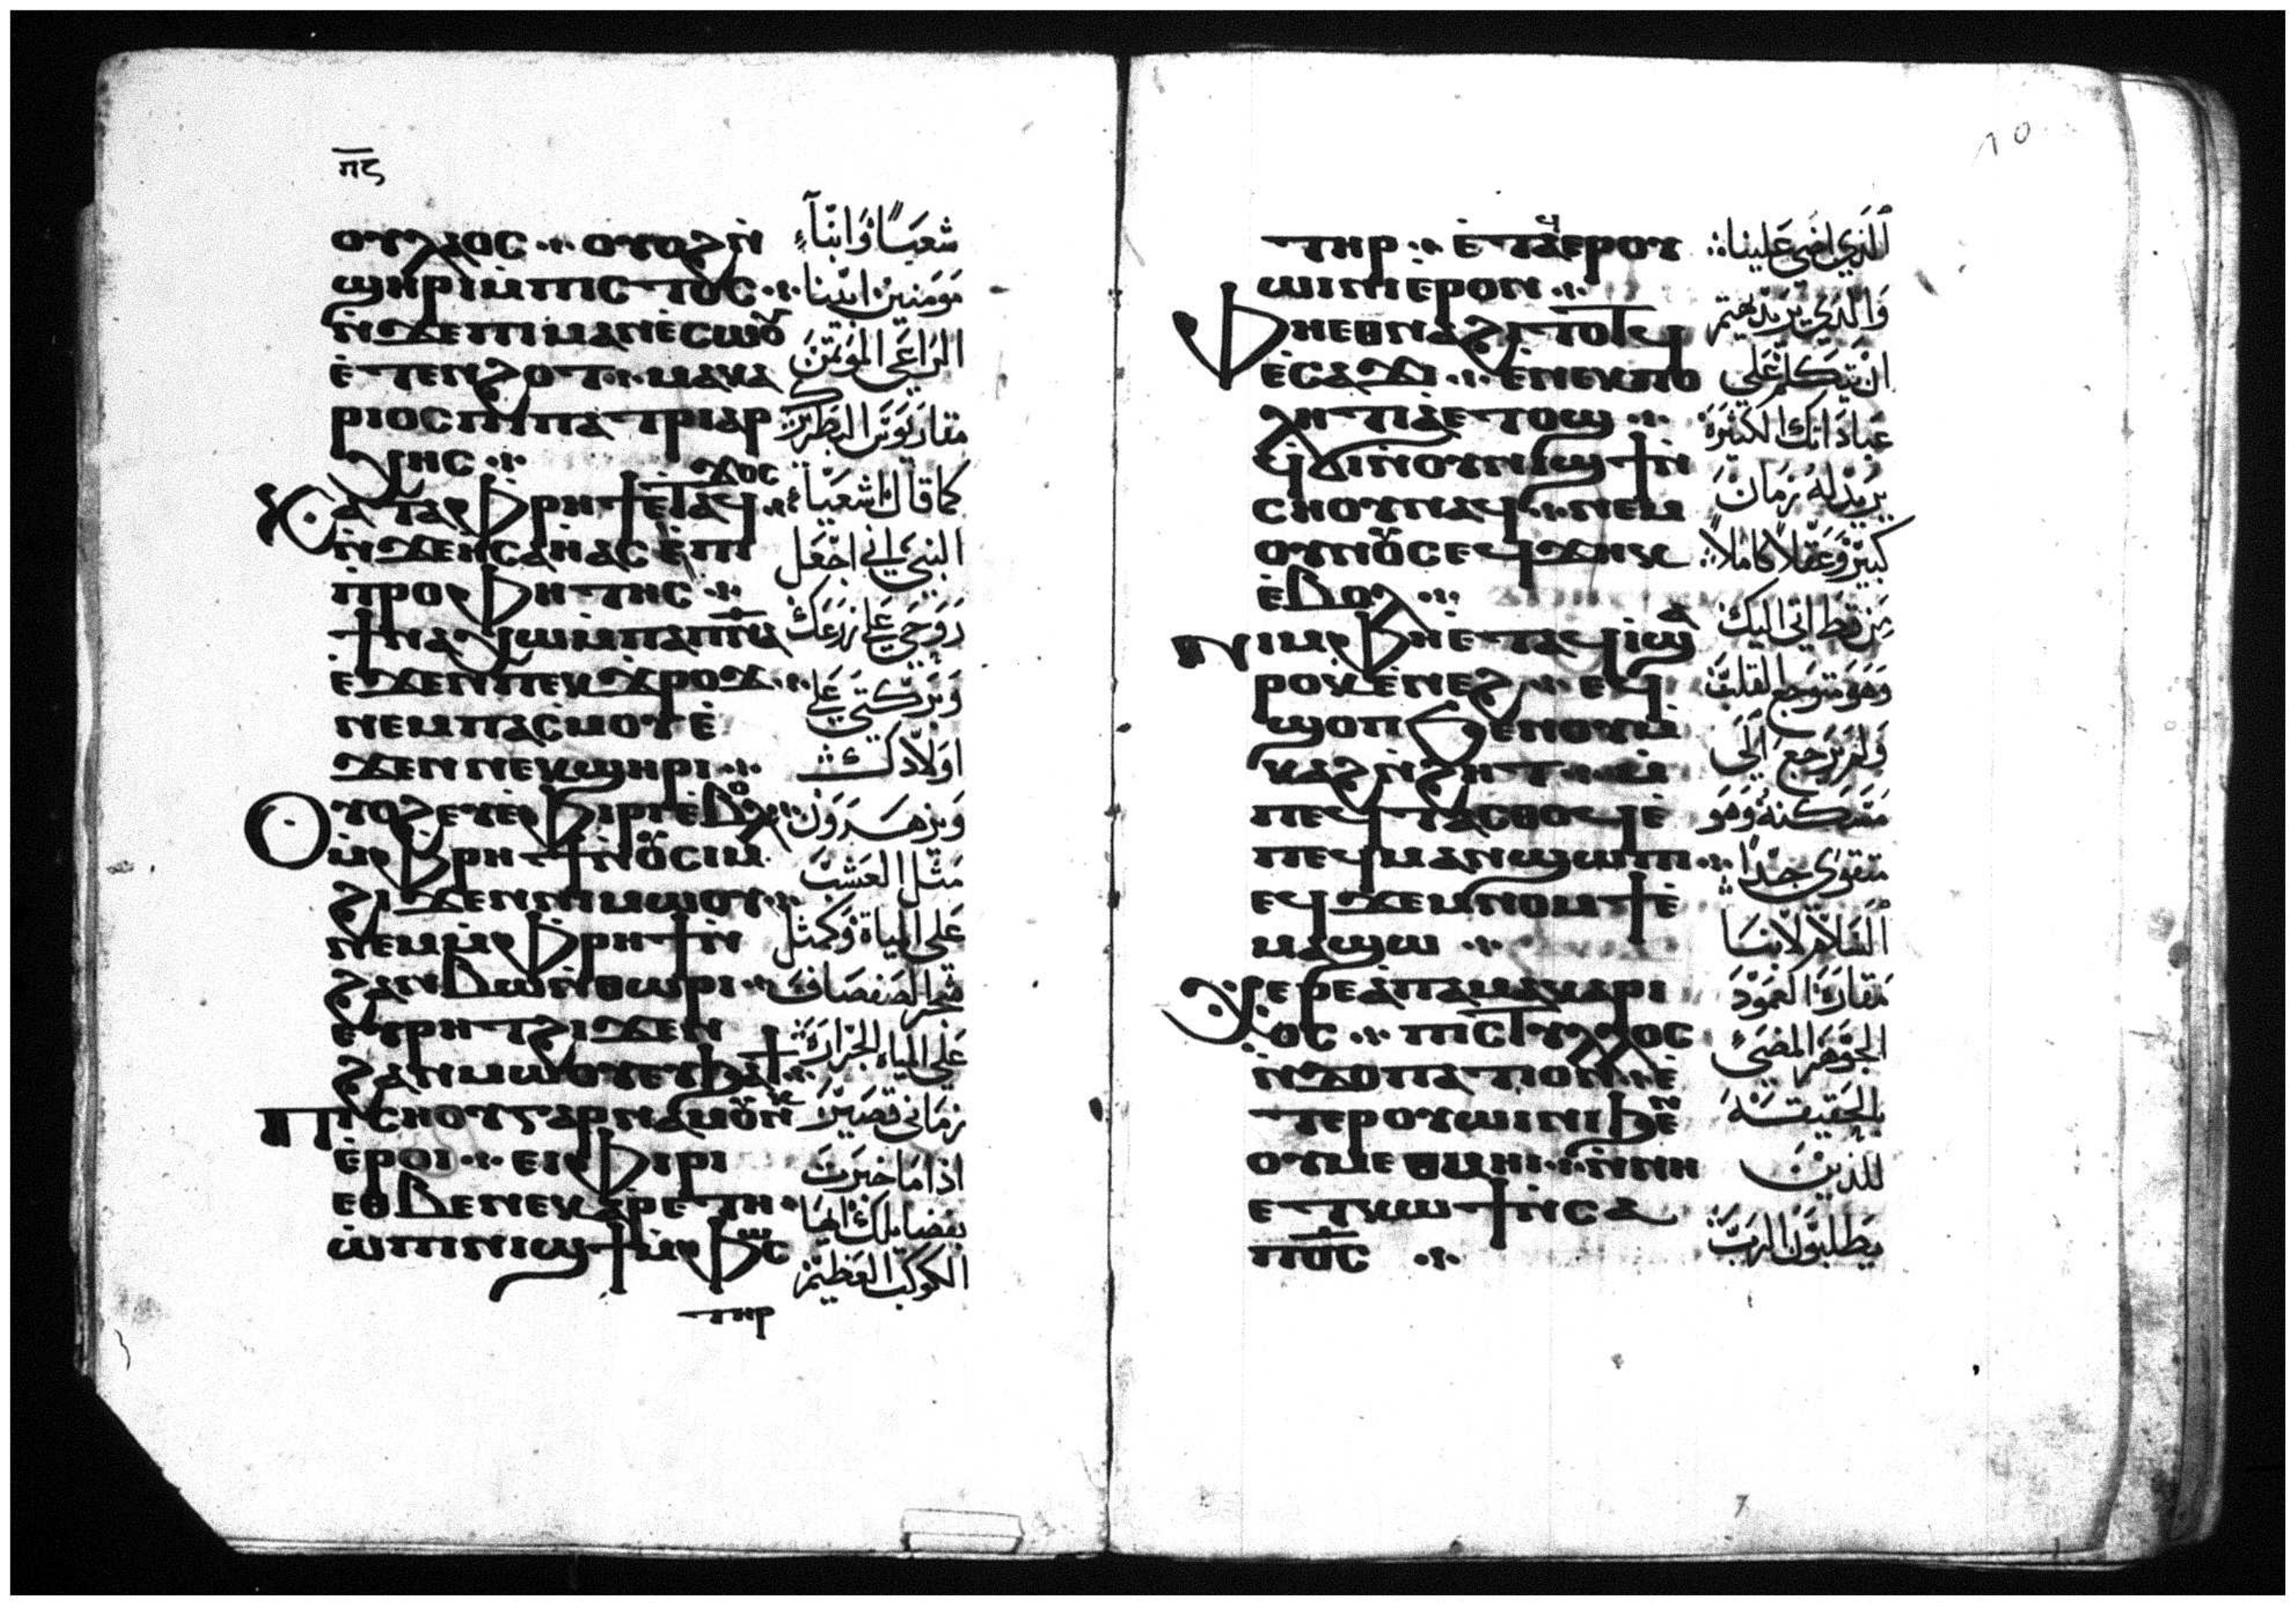 ⲡ̅ⲋ̅
ⲟⲩⲗⲁⲟⲥ ⁘ ⲟⲩⲟϩ ⲛ̀
ϣⲏⲣⲓ ⲙ̀ⲡⲓⲥⲧⲟⲥ ⁘
ⲛ̀ϫⲉ ⲡⲓⲙⲁⲛⲉ̀ⲥⲱⲟⲩ
ⲉ̀ⲧⲉⲛϩⲟⲧ ⁘ ⲙⲁⲕⲁ
ⲣⲓⲟⲥ ⲡⲓⲡⲁⲧⲣⲓⲁⲣ
ⲭⲏⲥ ⁘
Ⲕⲁⲧⲁ ⲫⲣⲏϯ ⲉ̀ⲧⲁϥ ϫⲟⲥ ⁘
ⲛ̀ϫⲉ ⲏⲥⲁⲏⲁⲥ ⲡⲓ
ⲡⲣⲟⲫⲏⲧⲏⲥ ⁘
ϯⲛⲁⲭⲱ ⲙ̀ⲡⲁⲡ̅ⲛ̅ⲁ̅
ⲉ̀ϫⲉⲛ ⲡⲉⲕϫⲣⲟϫ ⁘
ⲛⲉⲙ ⲡⲁⲥⲙⲟⲩ ⲉ̀
ϫⲉⲛ ⲛⲉⲕϣⲏⲣⲓ ⁘
Ⲟⲩⲟϩ ⲉⲩⲉ̀ⲫⲓⲣⲓ ⲉ̀ⲃⲟⲗ
ⲙ̀ⲫⲣⲏϯ ⲛ̀ⲟⲩⲥⲓⲙ
ϩⲓϫⲉⲛ ⲛⲓⲙⲱⲟⲩ ⁘
ⲛⲉⲙ ⲙ̀ⲫⲣⲏϯ ⲛ̀
ϩⲁⲛⲃⲱ ⲛ̀ⲑⲱⲣⲓ ⁘
ⲉⲩⲣⲏⲧ ϩⲓϫⲉⲛ
ϩⲁⲛⲙⲱⲟⲩ ⲉⲧϧⲁϯ ⁘
Ⲡⲓⲥⲛⲟⲩ ⲅⲁⲣ ⲛⲁⲙⲟⲩⲛⲕ
ⲉ̀ⲣⲟⲓ ⁘ ⲉⲓⲫⲓⲣⲓ
ⲉⲑⲃⲉ ⲛⲉⲕⲁⲣⲉⲧⲏ ·
ⲱ̀ ⲡⲓⲛⲓϣϯ ⲙ̀ⲫⲱⲥ
ⲧⲏⲣ
شعبًا وابنآء
مومنين ايدينا
الراعي الموتمن
مقاريوس البطريرك
كما قال اشعياء
النبي اني اجعل
روحي علي زرعك
وبركتي علي
اولادك
ويزهرون
مثل العشب
علي المياة وكمثل
شجر الصفصاف
علي المياه الجرارة
زماني قصير
اذا ما خبرت
بفضايلك ايها
الكوكب العظيم
ⲧⲏⲣ ⁘ ⲉ̀ⲧⲁϥⲉⲣⲟⲩ
ⲱⲓⲛⲓ ⲉ̀ⲣⲟⲛ ⁘
Ⲫⲏⲉⲑⲛⲁϩⲓⲧⲟⲧϥ
ⲉ̀ⲥⲁϫⲓ ⁘ ⲉ̀ⲛⲉⲕⲡⲟ
ⲗⲏⲧⲓⲁ ⲉⲧⲟϣ ⁘
ϥϭⲓ ⲛ̀ⲟⲩⲛⲓϣϯ ⲛ̀
ⲥⲛⲟⲩ ⲛⲁϥ ⁘ ⲛⲉⲙ
ⲟⲩⲛⲟⲩⲥ ⲉϥϫⲏⲕ
ⲉ̀ⲃⲟⲗ ⁘
Ⲛⲓⲙ ⲫⲏⲉ̀ⲧⲁϥⲓ̀ ϣⲁ
ⲣⲟⲕ ⲉ̀ⲛⲉϩ ⁘ ⲉϥ
ϣⲟⲡ ϧⲉⲛ ⲟⲩⲙ̀
ⲕⲁϩ ⲛ̀ϩⲏⲧ ⁘ ⲙ̀
ⲡⲉϥⲧⲁⲥⲑⲟϥ ⲉ̀
ⲡⲉϥⲙⲁⲛϣⲱⲡⲓ ⁘
ⲉϥϫⲉⲙⲛⲟⲙϯ ⲉ̀
ⲙⲁϣⲱ ⁘
Ⲭⲉⲣⲉ ⲁⲡⲁ ⲙⲁⲕⲁⲣⲓ
ⲟⲥ ⁘ ⲡⲓⲥⲧⲩⲗⲗⲟⲥ
ⲛ̀ⲇⲟⲡⲁⲧⲓⲟⲛ ⁘ ⲉ̀
ⲧⲉⲣⲟⲩⲱⲓⲛⲓ ϧⲉⲛ
ⲟⲩⲙⲉⲑⲙⲏⲓ ⁘ ⲛ̀ⲛⲏ
ⲉⲧⲕⲱϯ ⲛ̀ⲥⲁ
ⲡ̅ⲟ̅ⲥ̅ ⁘
الذي اضي علينا
والذي يريد يهتم
ان يتكلم علي
عباداتك الكثيرة
يريد له زمان
كبير وعقلاً كاملاً
من قط اتي اليك
وهو متوجع القلب
ولم يرجع الي
مسكنه وهو
متقوي جدًا
السلام لابينا
مقاره العمود
الجوهر المضي
بالحقيقة
للذين
يطلبون الرب